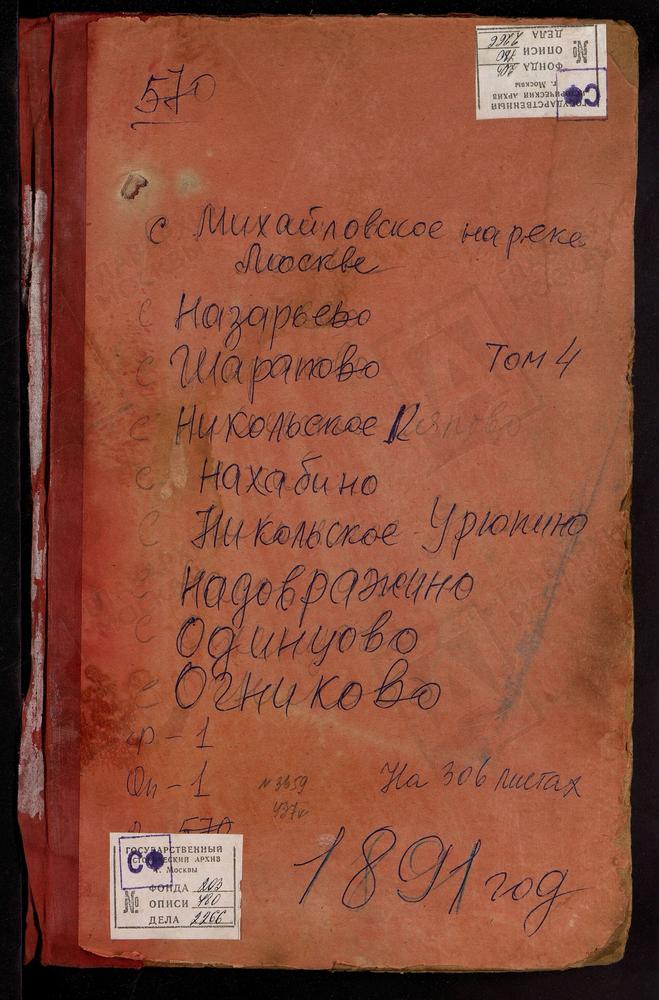 ГОСУДАРСТВЕННЫЙ
ИСТОРИЧЕСКИЙ АРХИВ
г. Москвы
СФ
ФОНДА 203
№ ОПИСИ 780
ДЕЛА 2266
570
с Михайловское на реке
Москве
с Назарьево
с Шарапово
Том 4
с Никольское
с Нахабино
с Никольское-Урюпино
Надовражино
с Одинцово
с Огниково
ф-1
Оп-1
На 306 листах
570
1891 год
ГОСУДАРСТВЕННЫЙ
ИСТОРИЧЕСКИЙ АРХИВ
г. Москвы
СФ
ФОНДА 203
№ ОПИСИ 780
ДЕЛА 2266